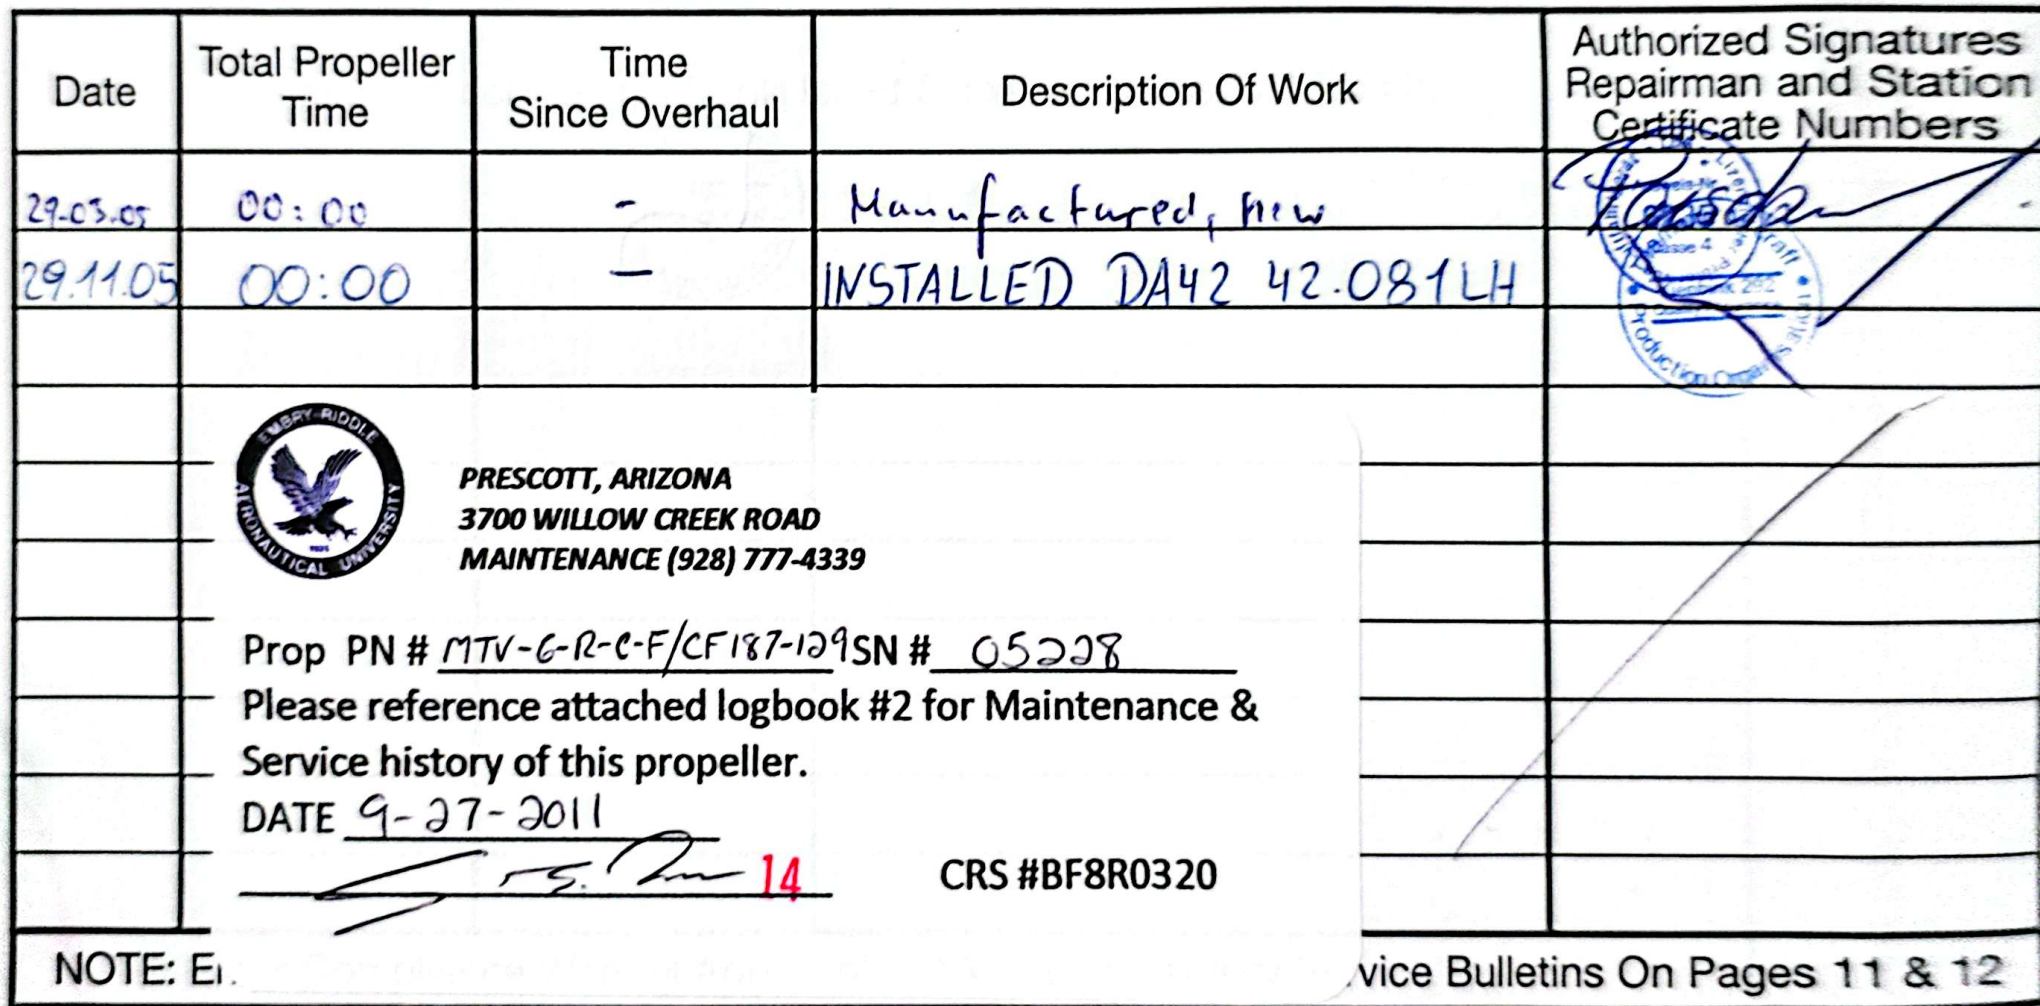 Date
Total Propeller
Time
Time
Since Overhaul
Description Of Work
Authorized Signatures
Repairman and Station
Certificate Numbers
29.03.05 00:00 - Manufactured, new
29.11.05 00:00 — INSTALLED DA42 42.081LH
Production Orga
EMBRY-RIDDLE
AERONAUTICAL UNIVERSITY
PRESCOTT, ARIZONA
3700 WILLOW CREEK ROAD
MAINTENANCE (928) 777-4339
Prop PN # MTV-6-R-C-F/CF187-129 SN # 05228
Please reference attached logbook #2 for Maintenance &
Service history of this propeller.
DATE 9-27-2011
14 CRS #BF8R0320
NOTE: vice Bulletins On Pages 11 & 12